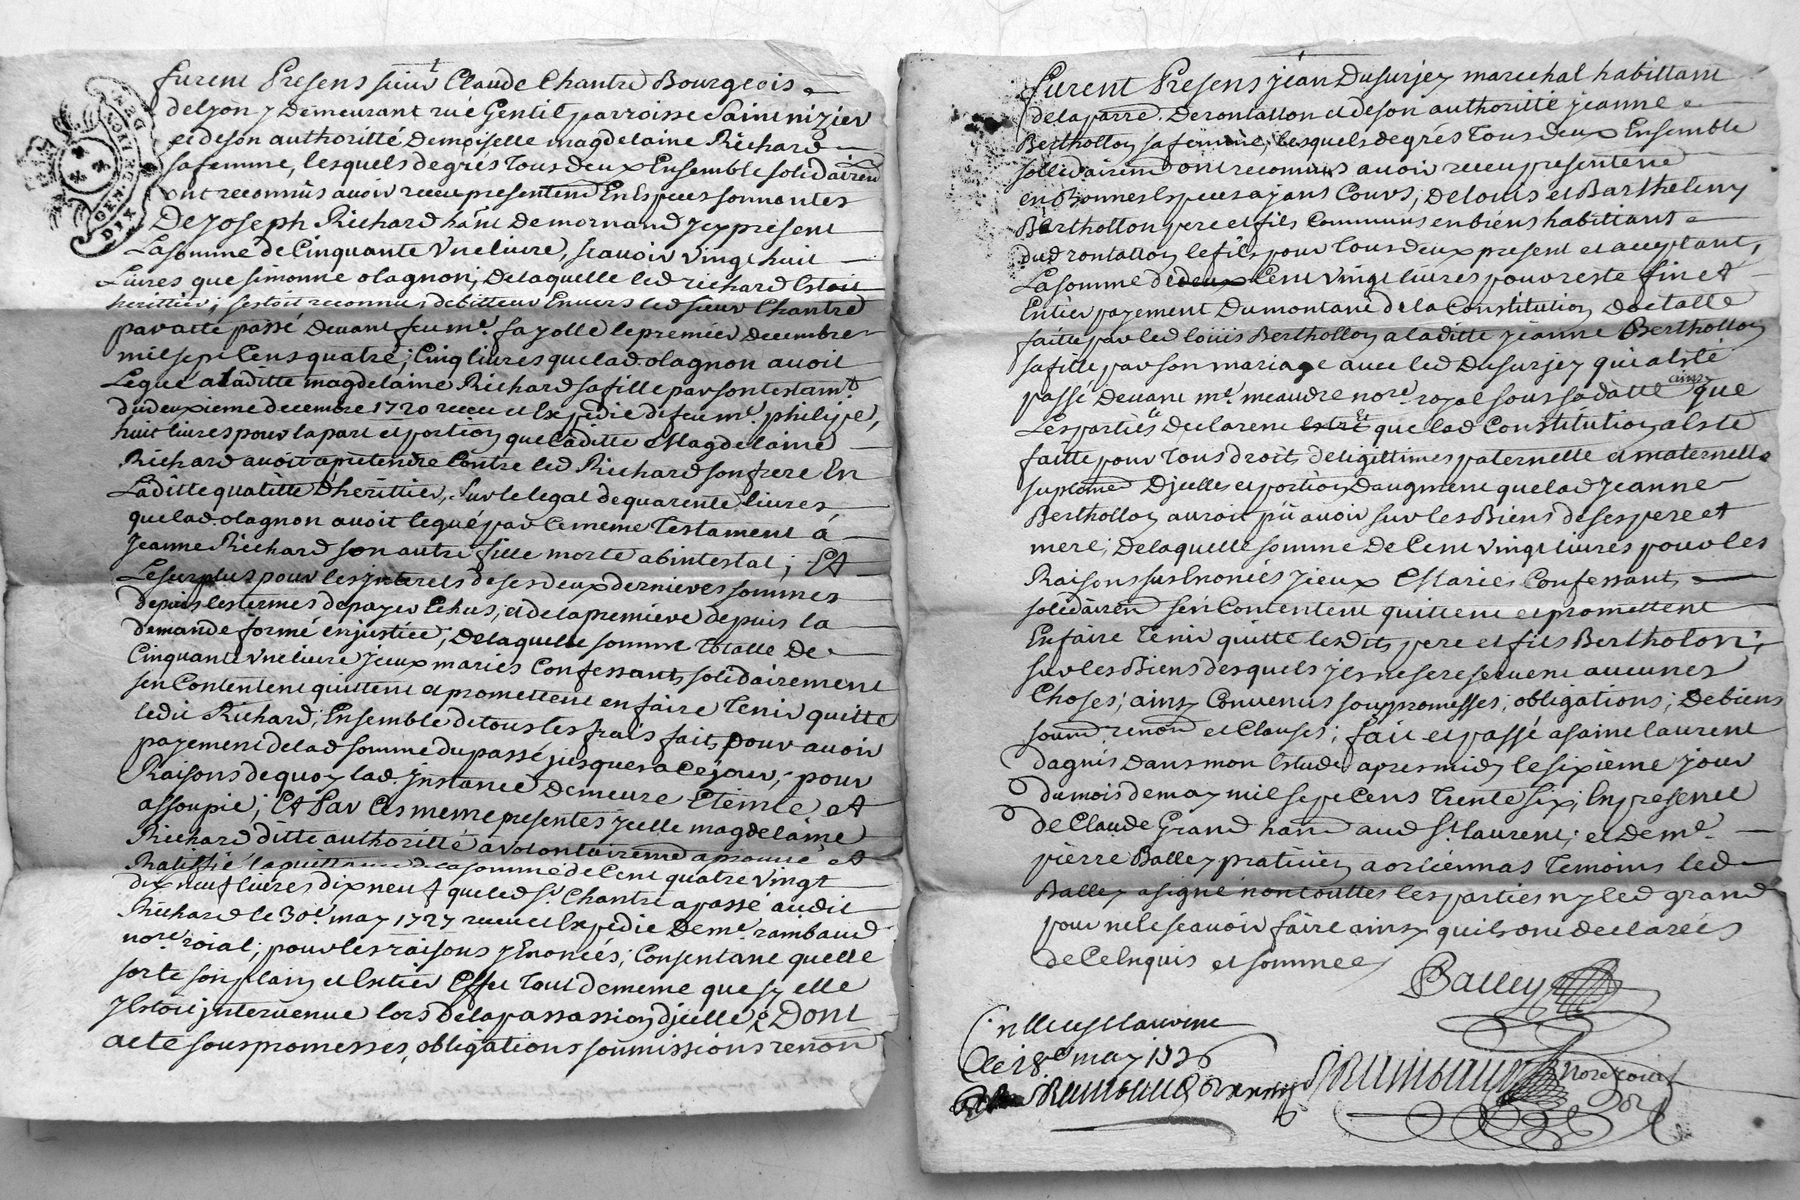 furent Presens sieur Claude Chantre Bourgeois
delyon y Demeurant rue Gentil parroisse Saint nizier
et deson authoritté Demoiselle magdelaine Richard
safemme, lesquels degrés Tous deux Ensemble solidairem
ont reconnus avoir receu presentem En Especes sonnantes
De Joseph Richard hãnt Demornand Jcy present
La somme de Cinquante Une livre, scavoir vingt huit
Livres que simonne olagnon, De laquelle led richard Estoit
herittier, sestoit reconnue debitteur Envers led sieur Chantre
par atte passé Devant feu me. fayolle le premier decembre
mil sept Cens quatre; Cinq livres que lad olagnon avoit
Legué a laditte magdelaine Richard sa fille par son testamt
du deuxieme decembre 1720 receu et Expedie de feu me. philipe,
huit livres pour la part et portion que laditte Magdelaine
Richard avoit a pretendre Contre led Richard son frere En
Laditte qualitté D'herittier, sur le legat de quarente livres
que lad olagnon avoit legué par le meme Testament á
Jeanne Richard son autre fille morte abintestat; Et
Le surplus pour les jnterets de ses deux dernieres sommes
depuis les termes de payer Echus, et de la premiere depuis la
demande formé en justice, De laquelle somme totalle De
Cinquante Une livre jceux mariés Confessants solidairement
sen Contentent quittent et promettent en faire Tenir quitte
ledit Richard, Ensemble de tous les frais faits pour avoir
payement de lad somme du passé jusques a Ce jour, pour
Raisons de quoy lad. Jnstance Demeure Eteinte et
assoupie; Et Par Ces meme presentes Jcelle magdelaine
Richard ditte authoritté a volontairemt aprouvé et
Ratiffié la quittance de la somme de Cent quatre vingt
dix neuf livres dix neuf que led sr. Chantre a passé audit
Richard le 30e. may 1727 receu et Expedie De me. rambaud
nore. roial; pour les raisons y Enoncés, Consentant quelle
sorte son plain et Entier Effet Tout de meme que sy elle
y Estoit jntervenue lors de la passassion djcelle, Dont
acte sous promesses, obligations soumissions renon
furent Presens jean Dusurjey marechal habittant
de la parre. De rontallon et de son authoritté jeanne
Berthollon sa femme, lesquels degrés Tous deux Ensemble
sollidairem ont reconnus avoir receu presentem
en Bonnes Especes ajans Cours, De louis et Barthelemy
Berthollon pere et fils Communs en biens habittant
dud rontallon le fils pour Tous deux present et acceptant,
La somme de deux Cent vingt livres pour reste fin et
Entier payement Du montant de la Constitution Dotalle
faitte par led loüis Berthollon a laditte jeanne Berthollon
sa fille par son mariage avec led Dusurjey qui a Esté
passé Devant me. meaudre nore. royal sous sa datte ainsy que
Les parties Declarent Et que lad Constitution a Esté
faitte pour Tous droits de ligittimes paternelle et maternelle
suplement Djcelles et portion daugment que lad Jeanne
Berthollon auroit pû avoir sur les Biens de ses pere et
mere; De laquelle somme De Cent vingt livres pour les
Raisons sus Enoncés jceux Mariés Confessants
solidairem sen Contentent quittent et promettent
En faire Tenir quitte lesdits pere et fils Bertholon;
sur les Biens desquels jls ne se reservent aucunes
Choses; ainsy Convenus sous promesses, obligations; De biens
soum renon et Clauses; fait et passé a saint laurent
dagnis dans mon Estude apres midy le sixième jour
du mois de may mil sept Cens Trente six; En presence
de Claude Grand hãnt aud St. laurent; et De me.
pierre Balley praticien a orliennas Temoins led
Balley a signé non touttes les parties ny led grand
pour ne le scavoir faire ainsy quils ont declarés
de Ce Enquis et sommés
Balley
le 18e. may 1736